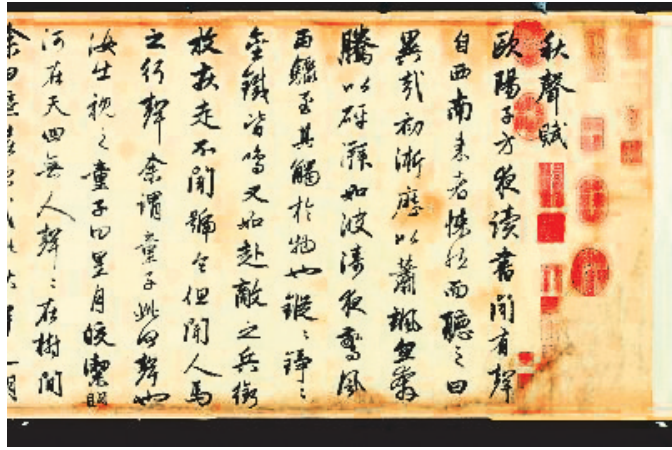 秋聲賦
歐陽子方夜讀書聞有聲
自西南來者悚然而聽之曰
異哉初淅瀝以蕭颯忽奔
騰以砰湃如波濤夜驚風
雨驟至其觸於物也鏦〻錚〻
金鐵皆鳴又如赴敵之兵銜
枚疾走不聞號令但聞人馬
之行聲余謂童子此何聲也
汝出視之童子曰星月皎潔明
河在天四無人聲〻在樹間
余曰噫